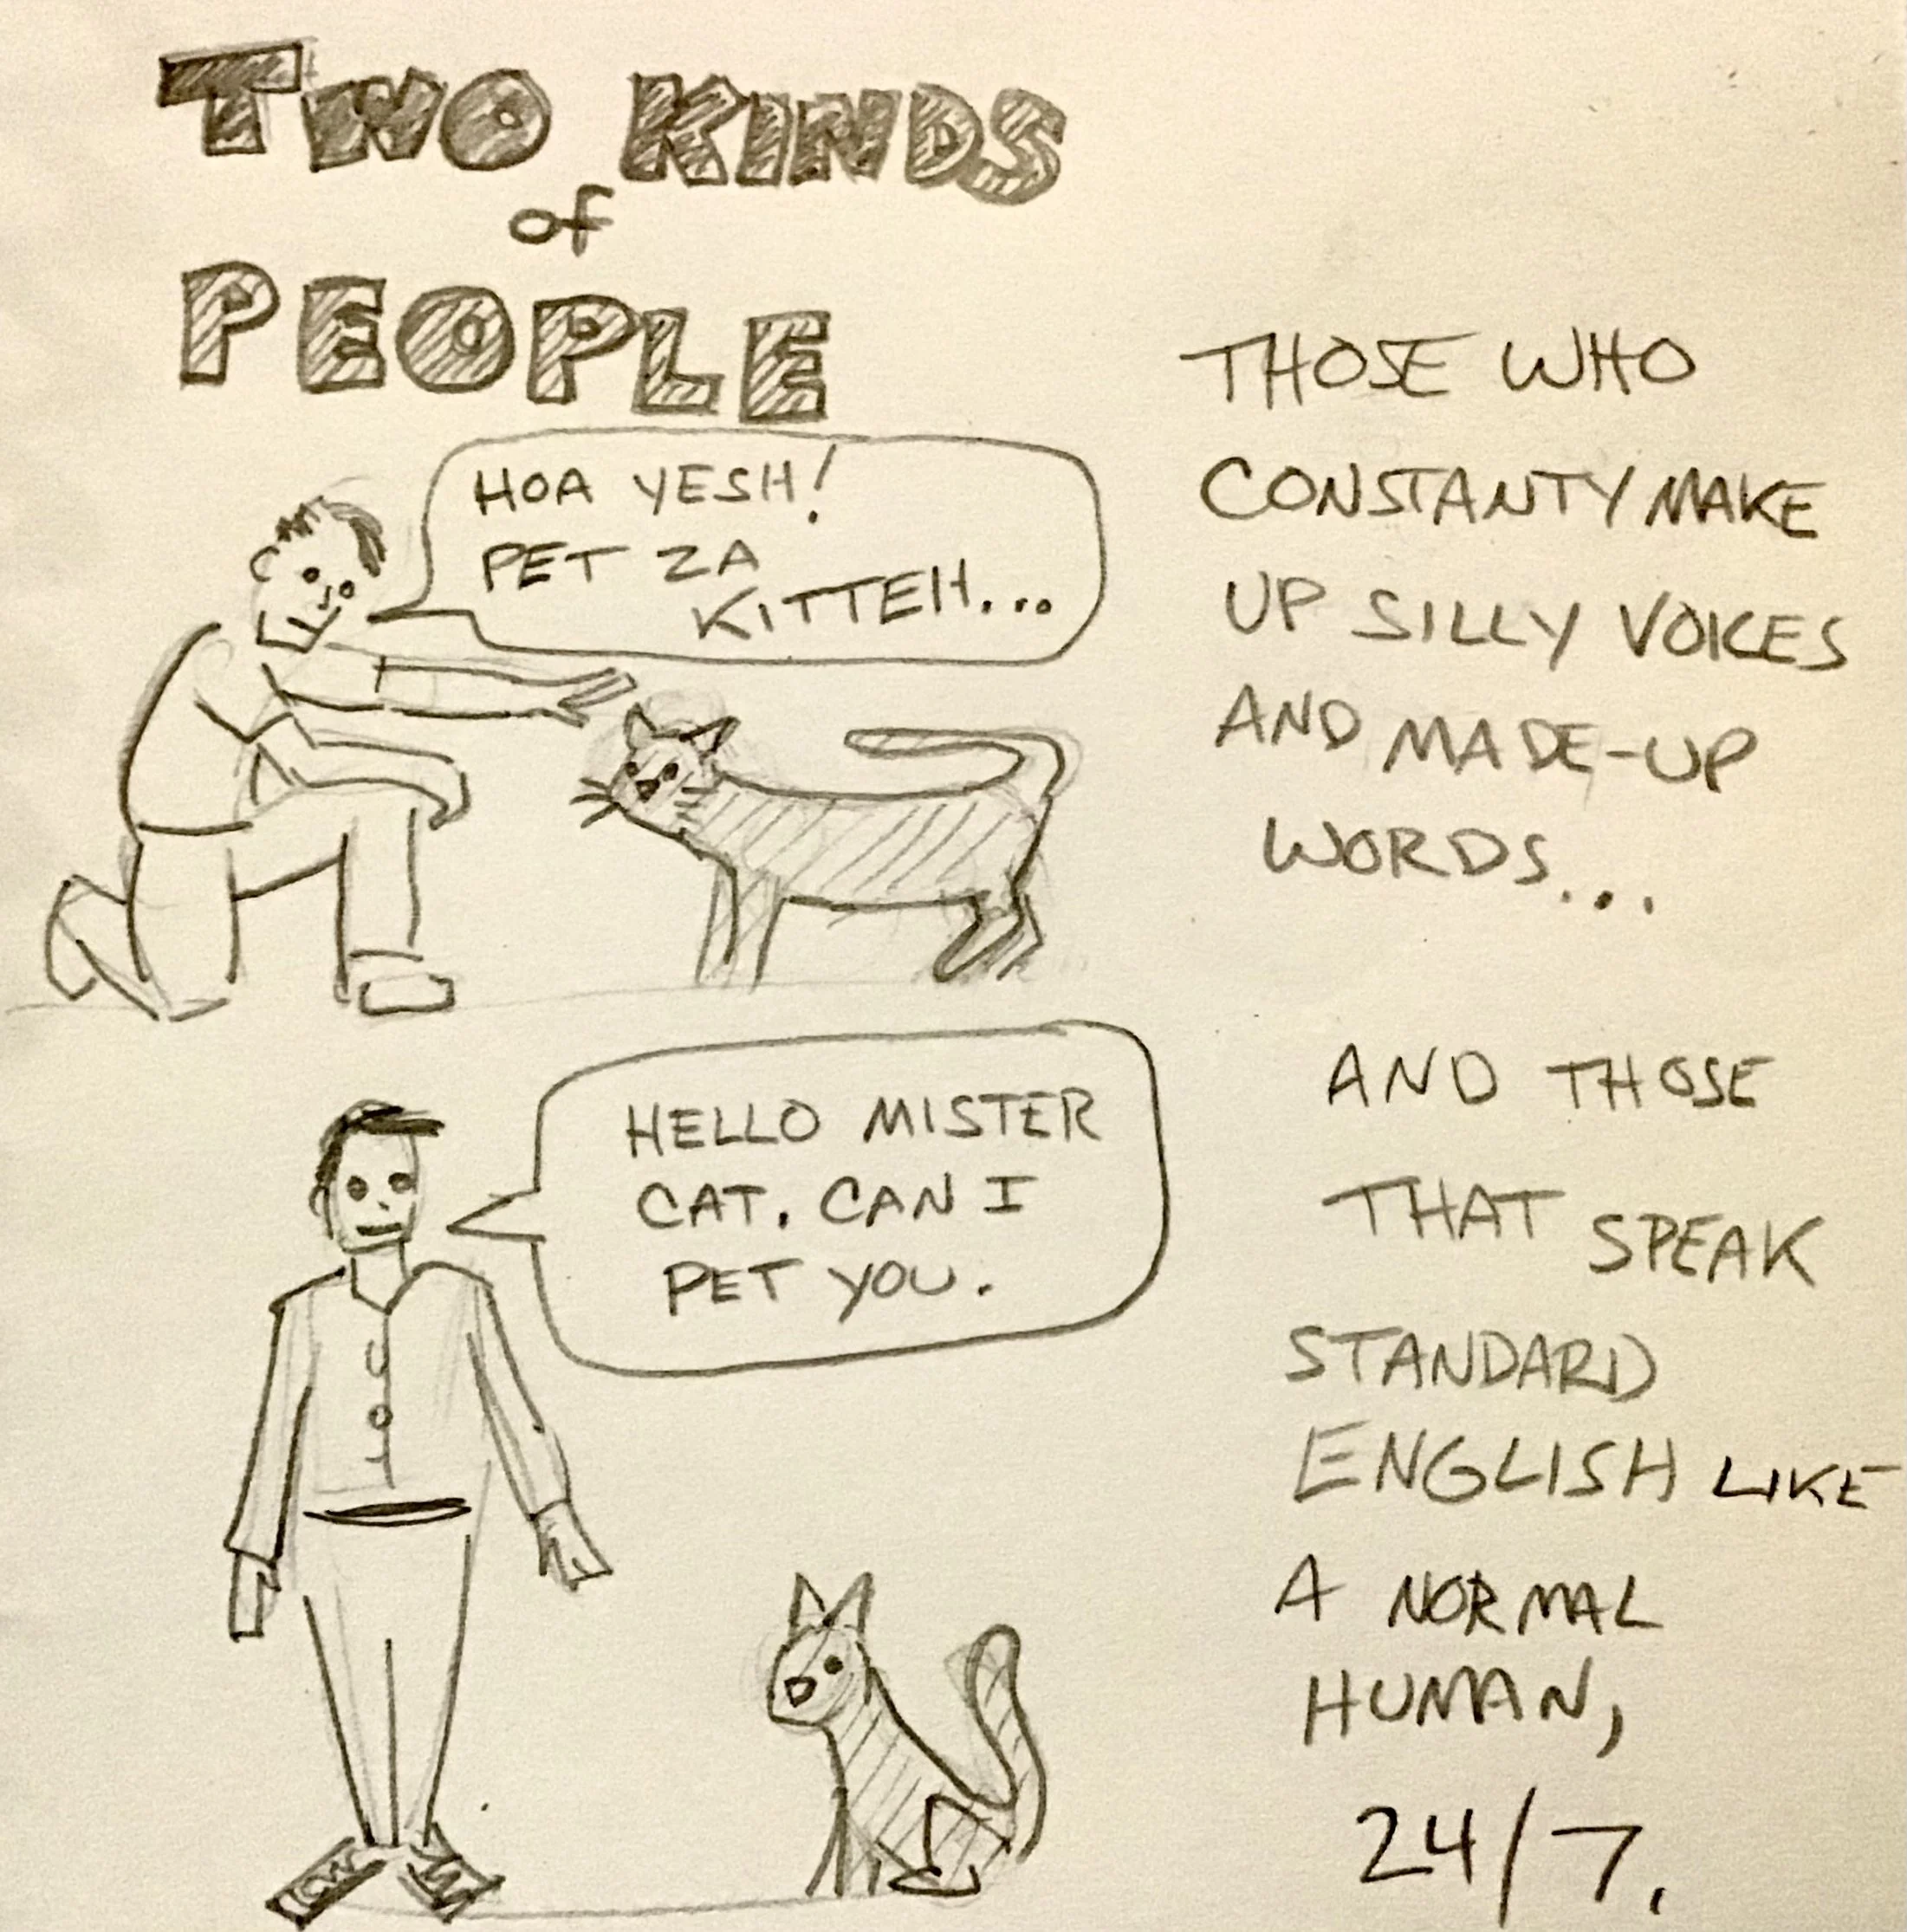 TWO KINDS
of
PEOPLE
HOA YESH!
PET ZA
KITTEH...
THOSE WHO
CONSTANTY MAKE
UP SILLY VOICES
AND MADE-UP
WORDS...
HELLO MISTER
CAT. CAN I
PET YOU.
AND THOSE
THAT SPEAK
STANDARD
ENGLISH LIKE
A NORMAL
HUMAN,
24/7.